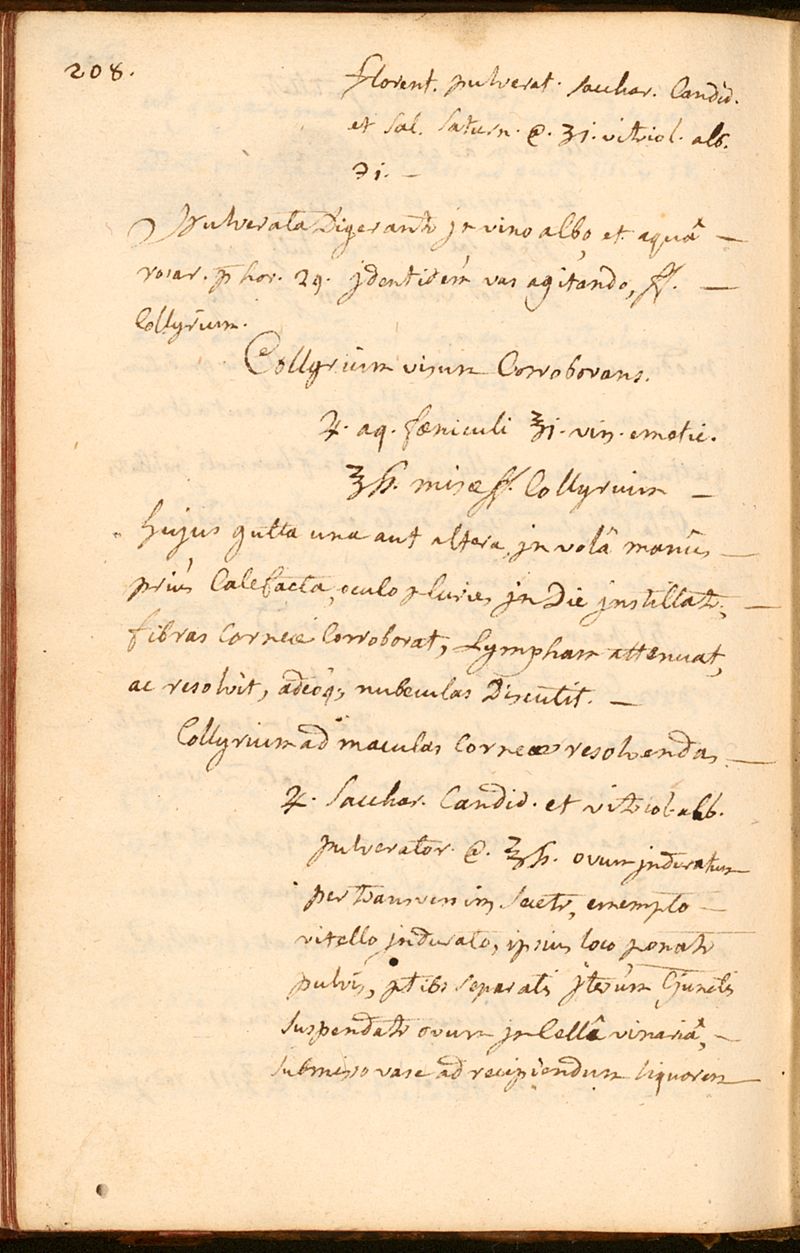 208.
florent. pulverat. sacchar. Candid.
et Sal. Saturn. a. ʒi. vitriol. alb.
℈i. —
Pulverata Digerantr jn vino albo, et aquâ —
rosar. p hor. 24. jdentidem vas agitando, ff. —
Collyrium.
Collyrium visum Corroborans.
♃. aq. fœniculi ℥i. vin. emetic.
℥ß. misce ff. Collyrium —
hujus gutta una aut altera, jn volâ manûs —
prius Calefacta, oculo pluries jn Die jnstillatr; —
fibras Corneæ Corroborat, Lympham attenuat,
ac resolvit, adeoq; nubeculas Discutit. —
Collyrium ad maculas Corneæ resolvendas —
♃. Sacchar. Candid. et vitriol. alb.
pulverator. a. ℥ß. ovum jnduratum
per transversum Secetr, exempto —
vitello jndurato, ipsius loco ponatr
pulvis, ptibs separatis jterum Cjunctis
suspendatr ovum jn Cellâ vinariâ, —
submisso vase ad recipiendum liquorem